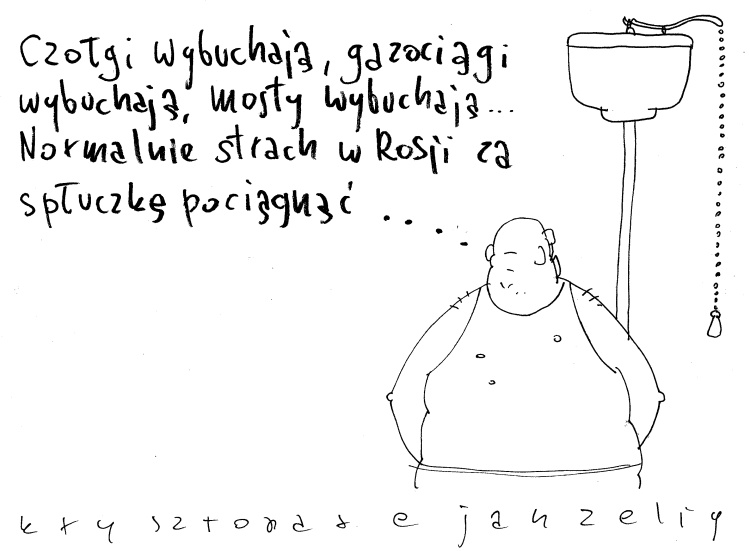 Czołgi wybuchają, gazociągi
wybuchają, mosty wybuchają...
Normalnie strach w Rosji za
spłuczkę pociągnąć ....